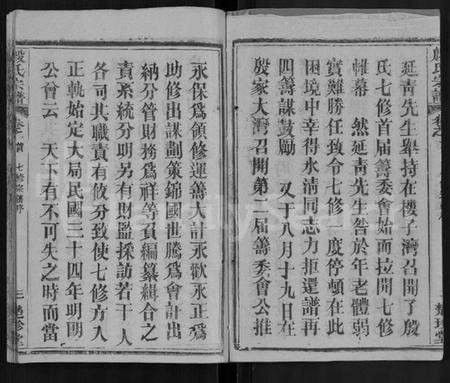 殷氏宗譜
延青先生舉持在樓子灣召開了殷
氏七修首屆籌委會始而拉開七修
帷幕 然延青先生咎於年老體弱
實難勝任致令七修一度停頓在此
困境中幸得水清同志力拒還譜再
四籌謀鼓勵 又于八月十九日在
殷家大灣召開第二屆籌委會公推
永保爲領修運善大計永歡永正爲
助修出謀劃策錦國世騰爲會計出
納分管財務爲祥等頁編纂緝合之
責系統分明另有財監採訪若干人
各司其職責有攸分致使七修方入
正軌始定大局民國三十四年明明
公會云 天下有不可失之時而當
殷氏宗譜
卷首 七修宗譜序
三